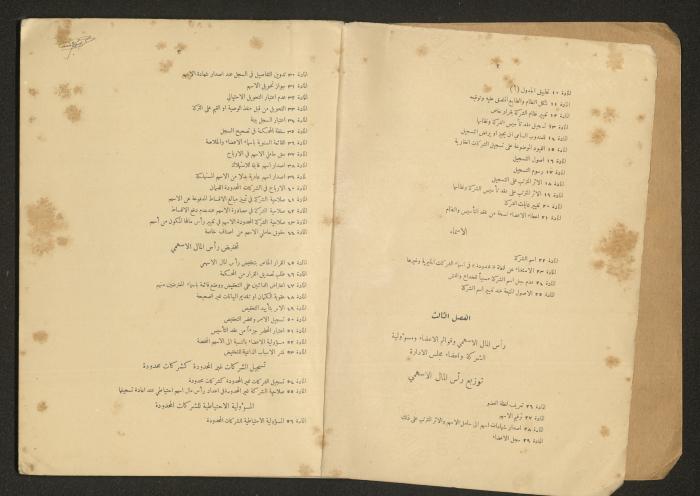 ٢
المادة ١٠ تطبيق الجدول (٦)
المادة ١١ شكل النظام والطابع الملصق عليه وتوقيعه
المادة ١٢ تغيير نظام الشركة بقرار خاص
المادة ١٣ تسجيل عقد تأسيس الشركة ونظامها
المادة ١٤ للمندوب السامي ان يجيز او يرفض التسجيل
المادة ١٥ القيود الموضوعة على تسجيل الشركات العقارية
المادة ١٦ اصول التسجيل
المادة ١٧ رسوم التسجيل
المادة ١٨ الاثر المترتب على التسجيل
المادة ١٩ الاثر المترتب على عقد تأسيس الشركة ونظامها
المادة ٢٠ تغيير غايات الشركة
المادة ٢١ اعطاء الاعضاء نسخة من عقد التأسيس والنظام
الاسماء
المادة ٢٢ اسم الشركة
المادة ٢٣ الاستغناء عن لفظة «محدودة» في اسماء الشركات الخيرية وغيرها
المادة ٢٤ عدم جعل اسم الشركة سبباً للخداع والغش
المادة ٢٥ الاصول المتبعة عند تغيير اسم الشركة
الفصل الثالث
رأس المال الاسهمي وقوائم الاعضاء ومسؤولية
الشركة واعضاء مجلس الادارة
توزيع رأس المال الاسهمي
المادة ٢٦ تعريف لفظة العضو
المادة ٢٧ ترقيم الاسهم
المادة ٢٨ اصدار شهادات اسهم الى حاملي الاسهم والاثر المترتب على ذلك
المادة ٢٩ سجل الاعضاء
٣
المادة ٣٠ تدوين التفاصيل في السجل عند اصدار شهادة الاسهم
المادة ٣١ جواز تحويل الاسهم
المادة ٣٢ عدم اعتبار التحويل الاحتيالي
المادة ٣٣ التحويل من قبل منفذ الوصية او القيم على التركة
المادة ٣٤ اعتبار السجل بينة
المادة ٣٥ سلطة المحكمة في تصحيح السجل
المادة ٣٦ القائمة السنوية باسماء الاعضاء والخلاصة
المادة ٣٧ حق حاملي الاسهم في الارباح
المادة ٣٨ اصدار اسهم قابلة للاستهلاك
المادة ٣٩ اصدار اسهم عادية بدلا من الاسهم المستهلكة
المادة ٤٠ الارباح في الشركات المحدودة الضمان
المادة ٤١ صلاحية الشركة في تمييز مبالغ الاقساط المدفوعة عن الاسهم
المادة ٤٢ صلاحية الشركة في مصادرة الاسهم عند عدم دفع الاقساط
المادة ٤٣ صلاحية الشركة المحدودة الاسهم في تغيير رأس مالها المكون من أسهم
المادة ٤٤ حقوق حاملي الاسهم من اصناف خاصة
تخفيض رأس المال الاسهمي
المادة ٤٥ القرار الخاص بتخفيض رأس المال الاسهمي
المادة ٤٦ طلب تصديق القرار من المحكمة
المادة ٤٧ اعتراض الدائنين على التخفيض ووضع قائمة باسماء المعترضين منهم
المادة ٤٨ عقوبة الكتمان او تقديم البيانات غير الصحيحة
المادة ٤٩ الامر بتأييد التخفيض
المادة ٥٠ تسجيل الامر ومحضر التخفيض
المادة ٥١ اعتبار المحضر جزءاً من عقد التأسيس
المادة ٥٢ مسؤولية الاعضاء بالنسبة الى الاسهم المخفضة
المادة ٥٣ نشر الاسباب الداعية للتخفيض
تسجيل الشركات غير المحدودة كشركات محدودة
المادة ٥٤ تسجيل الشركات غير المحدودة كشركات محدودة
المادة ٥٥ صلاحية الشركة غير المحدودة في اعداد رأس مال اسهم احتياطي عند اعادة تسجيلها
المسؤولية الاحتياطية للشركات المحدودة
المادة ٥٦ المسؤولية الاحتياطية للشركات المحدودة